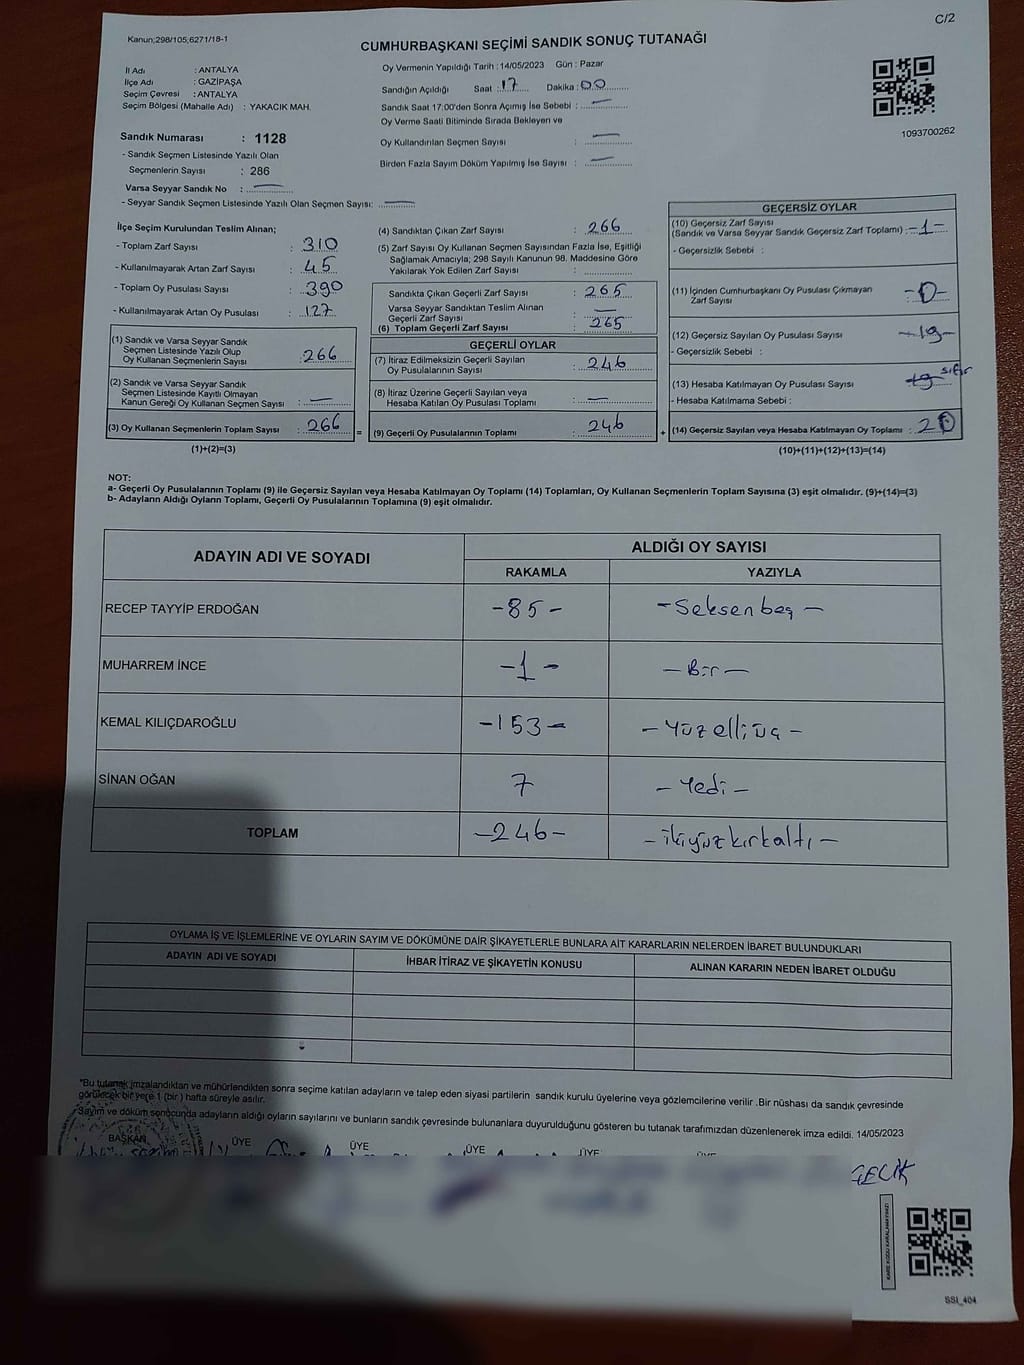 C/2
Kanun;298/105,6271/18-1
CUMHURBAŞKANI SEÇİMİ SANDIK SONUÇ TUTANAĞI
İl Adı : ANTALYA
İlçe Adı : GAZİPAŞA
Seçim Çevresi : ANTALYA
Seçim Bölgesi (Mahalle Adı) : YAKACIK MAH.
Oy Vermenin Yapıldığı Tarih : 14/05/2023 Gün : Pazar
Sandığın Açıldığı Saat : 17 Dakika : 00
Sandık Saat 17:00'den Sonra Açımış İse Sebebi : —
Oy Verme Saati Bitiminde Sırada Bekleyen ve
Oy Kullandırılan Seçmen Sayısı : —
Birden Fazla Sayım Döküm Yapılmış İse Sayısı : —
1093700262
Sandık Numarası : 1128
- Sandık Seçmen Listesinde Yazılı Olan
Seçmenlerin Sayısı : 286
Varsa Seyyar Sandık No : —
- Seyyar Sandık Seçmen Listesinde Yazılı Olan Seçmen Sayısı: —
İlçe Seçim Kurulundan Teslim Alınan;
- Toplam Zarf Sayısı : 310
- Kullanılmayarak Artan Zarf Sayısı : 45
- Toplam Oy Pusulası Sayısı : 390
- Kullanılmayarak Artan Oy Pusulası : 127
(1) Sandık ve Varsa Seyyar Sandık
Seçmen Listesinde Yazılı Olup
Oy Kullanan Seçmenlerin Sayısı : 266
(2) Sandık ve Varsa Seyyar Sandık
Seçmen Listesinde Kayıtlı Olmayan
Kanun Gereği Oy Kullanan Seçmen Sayısı : —
(3) Oy Kullanan Seçmenlerin Toplam Sayısı : 266
(1)+(2)=(3)
(4) Sandıktan Çıkan Zarf Sayısı : 266
(5) Zarf Sayısı Oy Kullanan Seçmen Sayısından Fazla İse, Eşitliği
Sağlamak Amacıyla; 298 Sayılı Kanunun 98. Maddesine Göre
Yakılarak Yok Edilen Zarf Sayısı :
Sandıkta Çıkan Geçerli Zarf Sayısı : 265
Varsa Seyyar Sandıktan Teslim Alınan
Geçerli Zarf Sayısı : —
(6) Toplam Geçerli Zarf Sayısı : 265
GEÇERLİ OYLAR
(7) İtiraz Edilmeksizin Geçerli Sayılan
Oy Pusulalarının Sayısı : 246
(8) İtiraz Üzerine Geçerli Sayılan veya
Hesaba Katılan Oy Pusulası Toplamı : —
= (9) Geçerli Oy Pusulalarının Toplamı : 246 +
GEÇERSİZ OYLAR
(10) Geçersiz Zarf Sayısı
(Sandık ve Varsa Seyyar Sandık Geçersiz Zarf Toplamı) : -1-
- Geçersizlik Sebebi :
(11) İçinden Cumhurbaşkanı Oy Pusulası Çıkmayan
Zarf Sayısı : -0-
(12) Geçersiz Sayılan Oy Pusulası Sayısı : -19-
- Geçersizlik Sebebi :
(13) Hesaba Katılmayan Oy Pusulası Sayısı : 19 sıfır
- Hesaba Katılmama Sebebi :
(14) Geçersiz Sayılan veya Hesaba Katılmayan Oy Toplamı : 20
(10)+(11)+(12)+(13)=(14)
NOT:
a- Geçerli Oy Pusulalarının Toplamı (9) ile Geçersiz Sayılan veya Hesaba Katılmayan Oy Toplamı (14) Toplamları, Oy Kullanan Seçmenlerin Toplam Sayısına (3) eşit olmalıdır. (9)+(14)=(3)
b- Adayların Aldığı Oyların Toplamı, Geçerli Oy Pusulalarının Toplamına (9) eşit olmalıdır.
ADAYIN ADI VE SOYADI
ALDIĞI OY SAYISI
RAKAMLA
YAZIYLA
RECEP TAYYİP ERDOĞAN -85- -Seksenbeş-
MUHARREM İNCE -1- -Bir-
KEMAL KILIÇDAROĞLU -153- -Yüzelliüç-
SİNAN OĞAN 7 -Yedi-
TOPLAM -246- -ikiyüzkırkaltı-
OYLAMA İŞ VE İŞLEMLERİNE VE OYLARIN SAYIM VE DÖKÜMÜNE DAİR ŞİKAYETLERLE BUNLARA AİT KARARLARIN NELERDEN İBARET BULUNDUKLARI
ADAYIN ADI VE SOYADI
İHBAR İTİRAZ VE ŞİKAYETİN KONUSU
ALINAN KARARIN NEDEN İBARET OLDUĞU
"Bu tutanak imzalandıktan ve mühürlendikten sonra seçime katılan adayların ve talep eden siyasi partilerin sandık kurulu üyelerine veya gözlemcilerine verilir .Bir nüshası da sandık çevresinde
görülecek bir yere 1 (bir ) hafta süreyle asılır.
Sayım ve döküm sonucunda adayların aldığı oyların sayılarını ve bunların sandık çevresinde bulunanlara duyurulduğunu gösteren bu tutanak tarafımızdan düzenlenerek imza edildi. 14/05/2023
BAŞKAN ÜYE ÜYE ÜYE ÜYE
GECİK
SSI_404